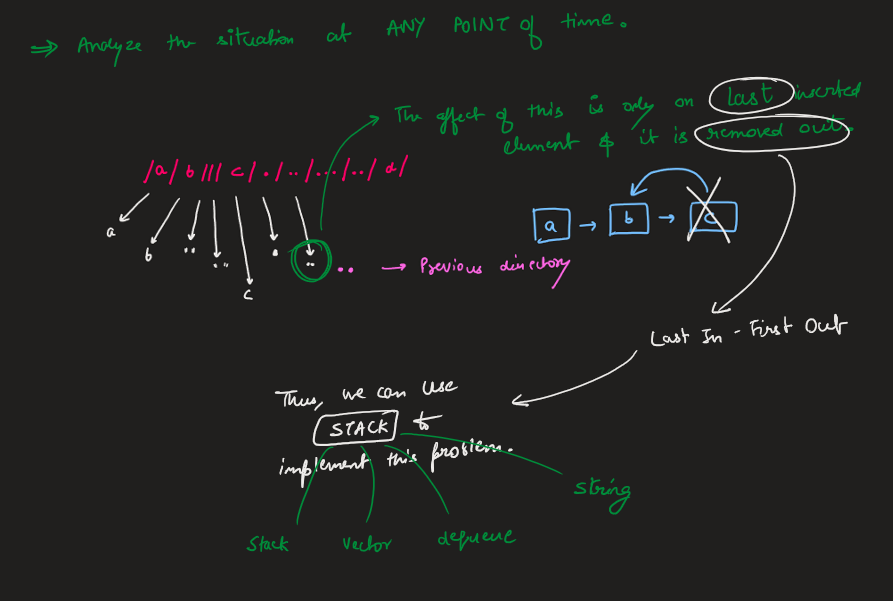 ⇒ Analyze the situation at ANY POINT of time.
The effect of this is only on last inserted
element & it is removed out.
/a/ b /// c/ . / .. / ... / .. / d/
a
b
..
...
c
.
..
.. → Previous directory
a → b → c
Last In - First Out
Thus, we can use
STACK to
implement this problem.
string
stack vector dequeue